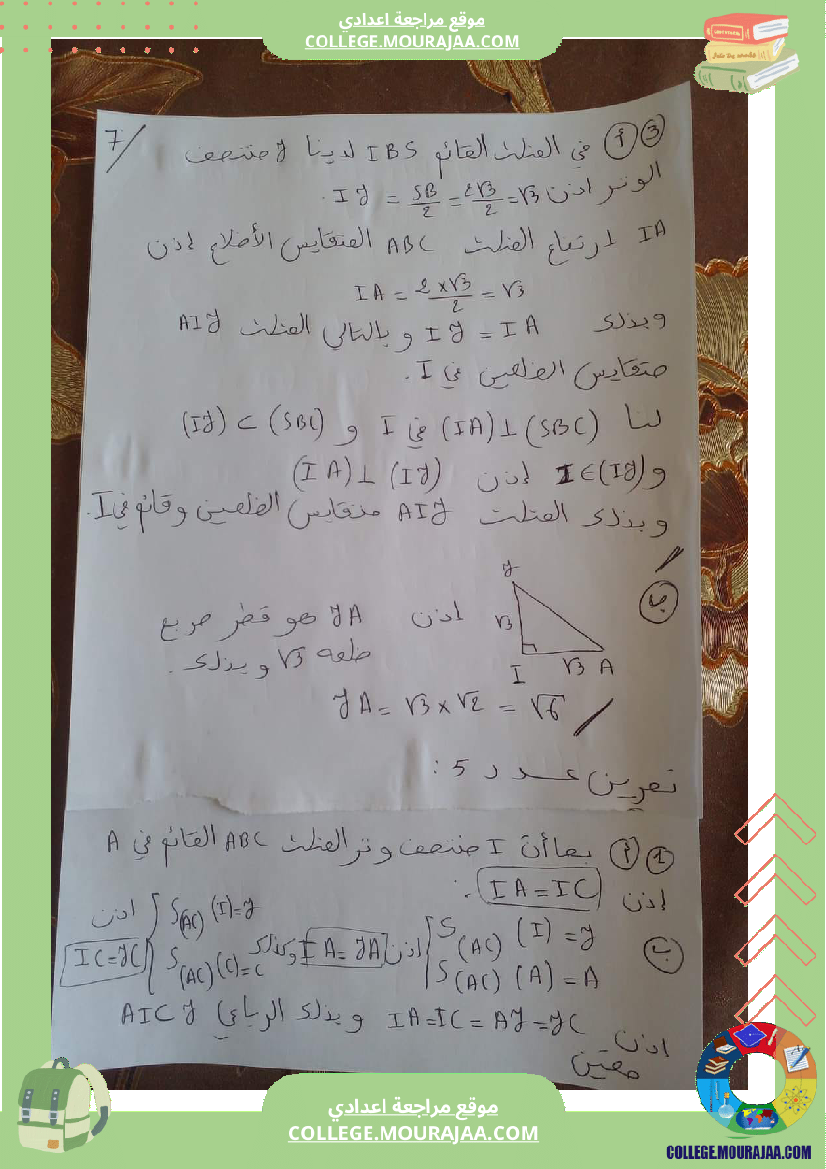 موقع مراجعة اعدادي
COLLEGE.MOURAJAA.COM
7/
③ أ) في المثلث القائم IBS لدينا J منتصف
الوتر اذن IJ = SB/2 = 2√3/2 = √3.
IA ارتفاع المثلث ABC المتقايس الأضلاع إذن
IA = 2×√3/2 = √3
وبذلك IJ = IA وبالتالي المثلث AIJ
متقايس الضلعين في I.
لنا (IA)⊥(SBC) في I و (IJ) ⊂ (SBC)
و I∈(IJ) إذن (IA)⊥(IJ)
وبذلك المثلث AIJ متقايس الضلعين وقائم في I.
ب)
J
√3
I √3 A
اذن JA هو قطر مربع
ضلعه √3 وبذلك.
JA = √3 × √2 = √6
تمرين عدد 5 :
① أ) بما أن I منتصف وتر المثلث ABC القائم في A
إذن IA = IC.
ب) { S(AC) (I) = J
S(AC) (A) = A
اذن IA = JA وكذلك
{ S(AC) (I) = J
S(AC) (C) = C
اذن
IC = JC
اذن IA = IC = AJ = JC وبذلك الرباعي AICJ
معين
موقع مراجعة اعدادي
COLLEGE.MOURAJAA.COM
COLLEGE.MOURAJAA.COM